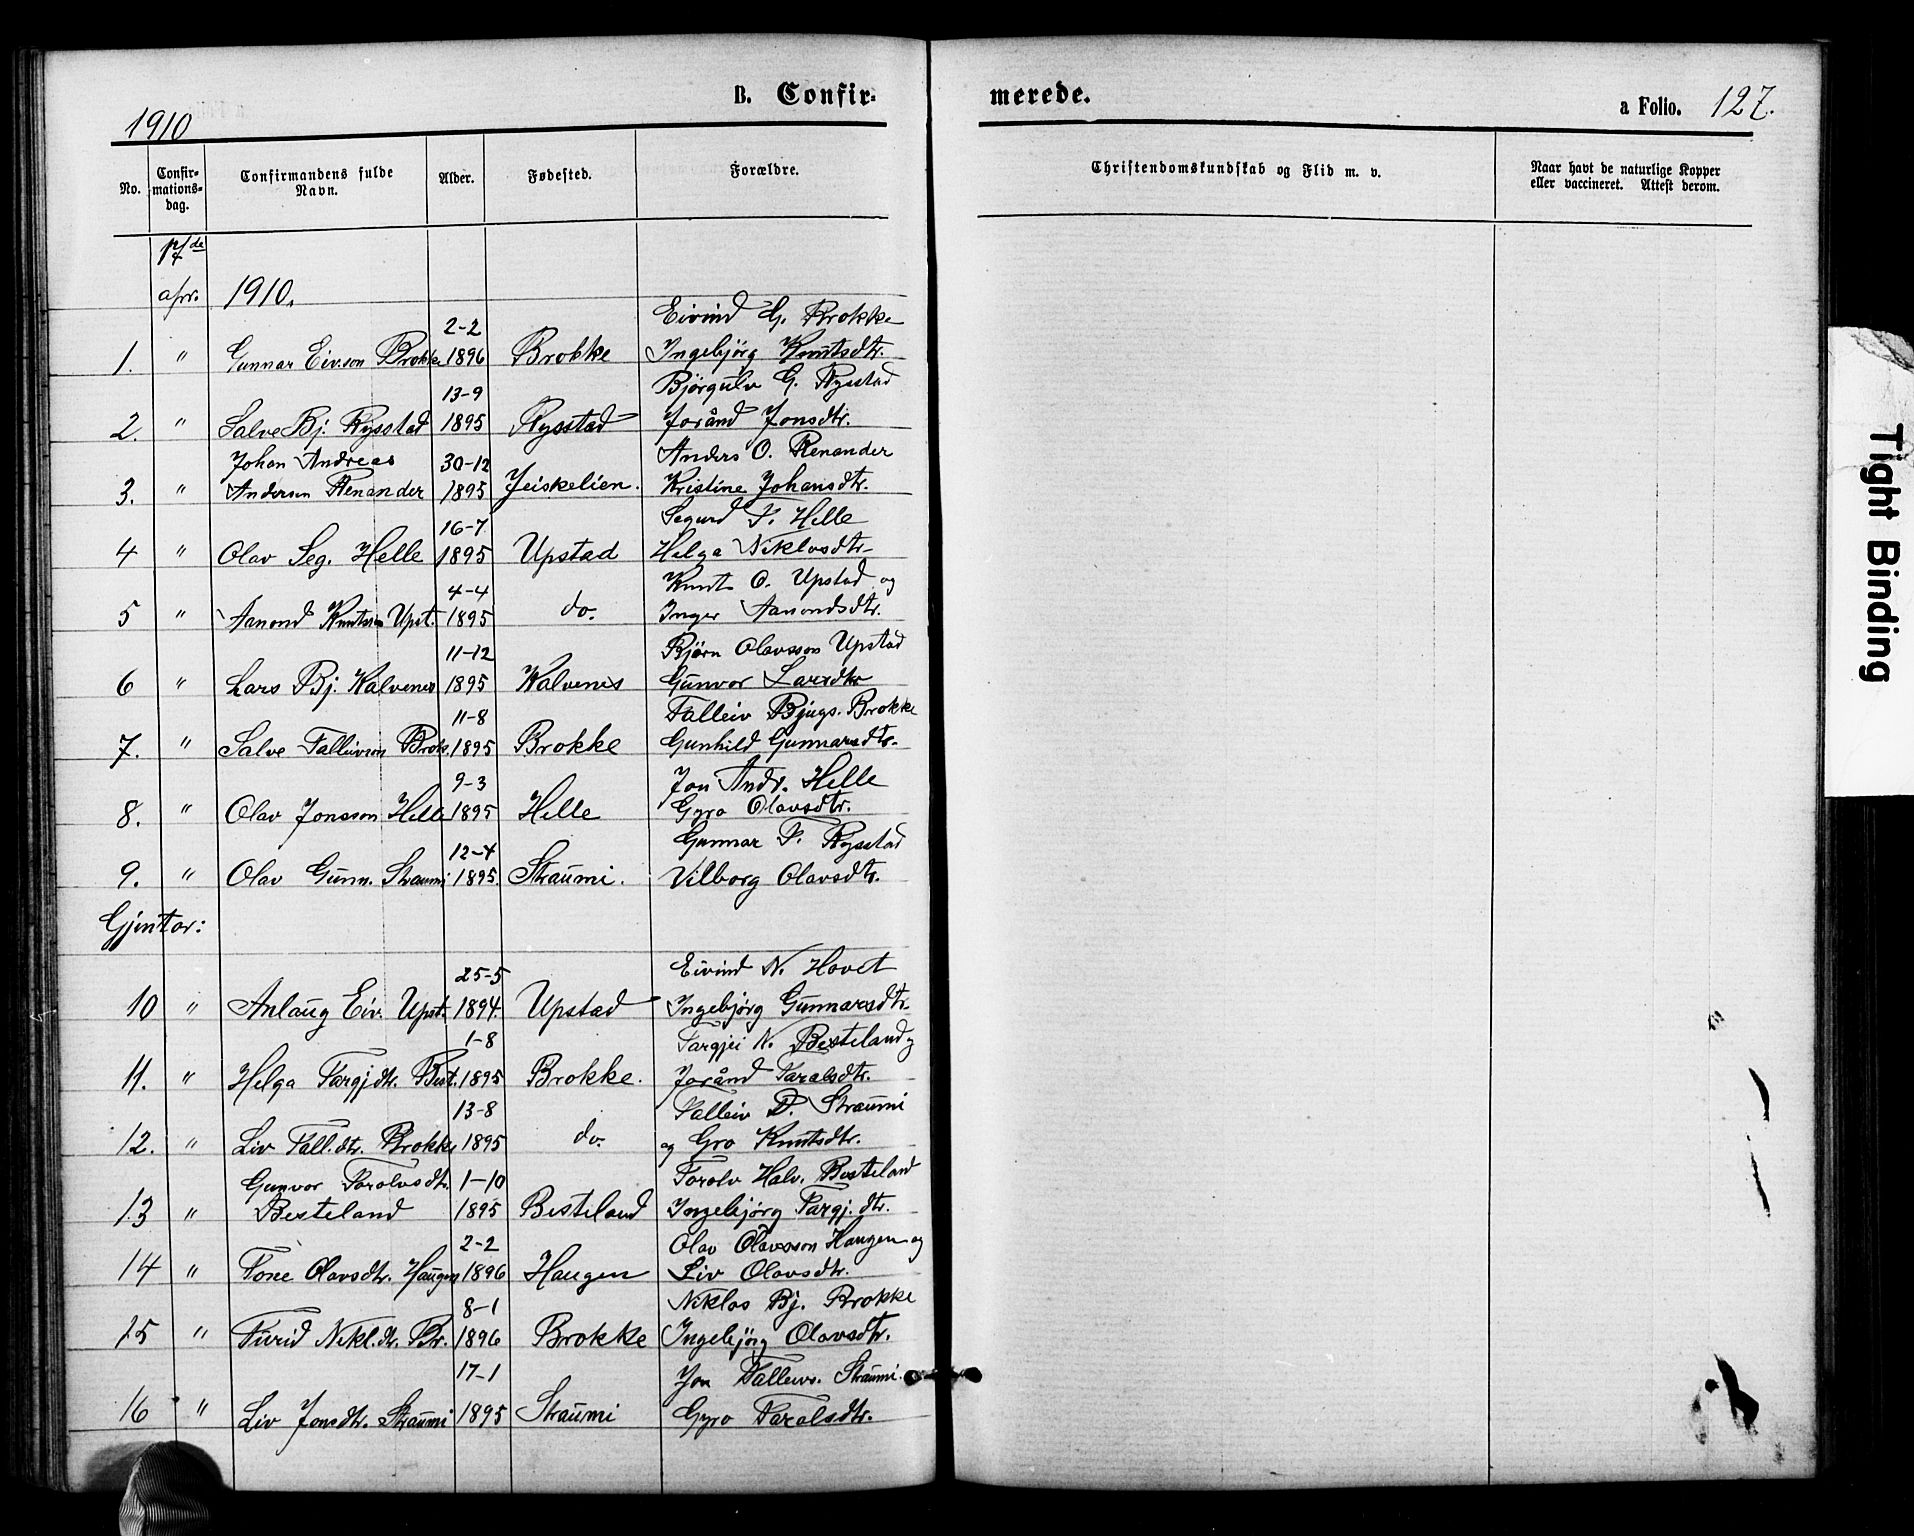 1910
B. Confir-
merede.
a Folio. 127.
No.
Confir-
mations-
dag.
Confirmandens fulde
Navn.
Alder.
Fødested.
Forældre.
Christendomskundskab og Flid m. v.
Naar havt de naturlige Kopper
eller vaccineret. Attest derom.
apr. 1910.
2-2 Eivind G. Brokke
1. " Gunnar Eiv.son Brokke 1896 Brokke Ingebjörg Knutsdtr.
13-9 Bjørgulv G. Rysstad
2. " Salve Bj. Rysstad 1895 Rysstad Joränd Jonsdtr.
Johan Andreas 30-12 Anders O. Renander
3. " Andersen Renander 1895 Jeiskelien. Kristine Johansdtr.
16-7 Segurd T. Helle
4 " Olav Seg. Helle 1895 Upstad Helga Niklosdtr.
4-4 Knut O. Upstad og
5 " Aanond Knutson Upst. 1895 do. Inger Aanondsdtr.
11-12 Bjørn Olavsson Upstad
6 " Lars Bj. Kalvenes 1895 Kalvenes Gunvor Larsdtr
11-8 Talleiv Bjugs. Brokke
7. " Salve Talleivson Brok. 1895 Brokke Gunhild Gunnarsdtr.
9-3 Jon Andr. Helle
8. " Olav Jonsson Helle 1895 Helle Gyro Olavsdtr.
12-4 Gunnar T. Rysstad
9. " Olav Gunn. Straumi 1895. Straumi. Vilborg Olavsdtr.
Gjentor:
25-5 Eivind N. Hovet
10 " Anlaug Eiv. Upst. 1894. Upstad Ingebjörg Gunnarsdtr
1-8 Targjei N. Besteland og
11. " Helga Targjdtr. Best. 1895 Brokke. Jorånd Taralsdtr.
13-8 Talleiv D. Straumi
12. " Liv Tall.dtr. Brokke 1895 do. og Gro Knutsdtr.
Gunvor Torolvsdtr. 1-10 Torolv Halv. Besteland
13 " Besteland 1895 Besteland Ingebjörg Targj.dtr.
2-2 Olav Olavsson Haugen og
14 " Tone Olavsdtr. Haugen 1896 Haugen Liv Olavsdtr.
8-1 Niklos Bj. Brokke
15 " Turid Nikl.dtr. Br. 1896 Brokke Ingebjörg Olavsdtr.
17-1 Jon Talleivs. Straumi.
16 " Liv Jonsdtr. Straumi 1895 Straumi Gyro Taralsdtr.
Tight Binding